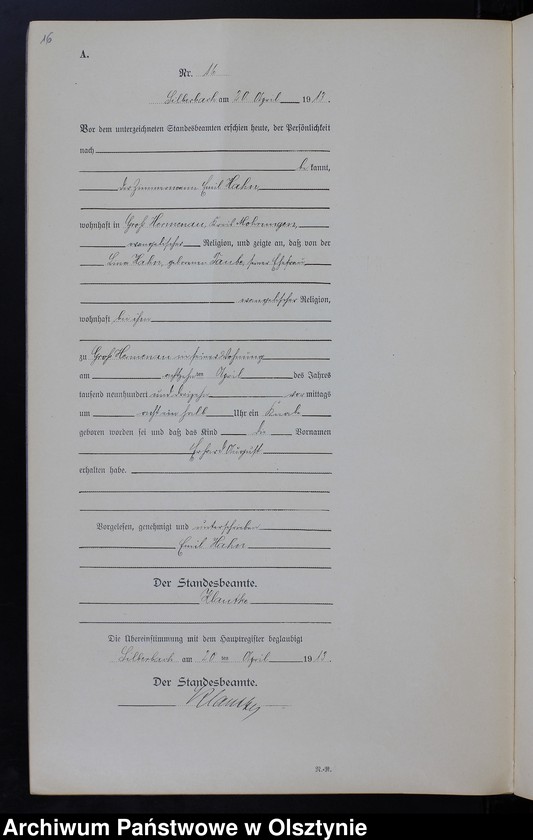 16
A.
Nr. 16
Silberbach am 20 April 1913.
Vor dem unterzeichneten Standesbeamten erschien heute, der Persönlichkeit
nach
be kannt,
der Zimmermann Emil Hahn
wohnhaft in Groß Hermenau, Kreis Mohrungen,
evangelischer Religion, und zeigte an, daß von der
Hahn, geborenen Taube, seiner Ehefrau
evangelischer Religion,
wohnhaft bei ihm
zu Groß Hermenau in seiner Wohnung
am achtzehnten April des Jahres
tausend neunhundert und dreizehn vor mittags
um acht ein halb Uhr ein Knabe
geboren worden sei und daß das Kind die Vornamen
Erhard August
erhalten habe.
Vorgelesen, genehmigt und unterschrieben
Emil Hahn
Der Standesbeamte.
Die Übereinstimmung mit dem Hauptregister beglaubigt
Silberbach am 20 ten April 1913.
Der Standesbeamte.
Archiwum Państwowe w Olsztynie